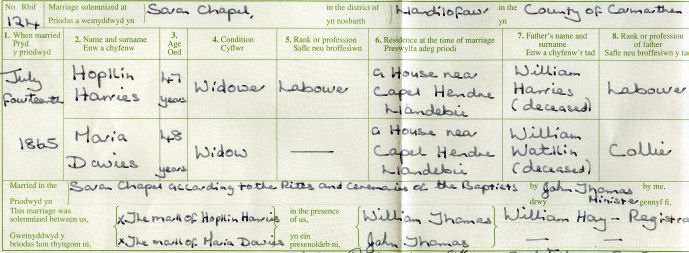 No. Rhif Marriage solemnized at Saron Chapel, in the district of Llandilofawr in the County of Carmarthen
124 Priodas a weinyddwyd yn yn nosbarth yn
1. When married Pryd y priodwyd 2. Name and surname Enw a chyfenw 3. Age Oed 4. Condition Cyflwr 5. Rank or profession Safle neu broffesiwn 6. Residence at the time of marriage Preswylfa adeg priodi 7. Father's name and surname Enw a chyfenw'r tad 8. Rank or profession of father Safle neu broffesiwn y ta
July fourteenth Hopkin Harries 47 years Widower Labourer a House near Capel Hendre Llandebie William Harries (deceased) Labourer
1865 Maria Davies 48 years Widow — a House near Capel Hendre Llandebie William Watkin (deceased) Collier
Married in the Saron Chapel according to the Rites and Ceremonies of the Baptists by John Thomas by me,
Priodwyd yn drwy Minister gennyf fi,
This marriage was solemnized between us, x The mark of Hopkin Harries in the presence of us, William Thomas William Hay - Registra
Gweinyddwyd y briodas hon rhyngom ni, x The mark of Maria Davies yn ein presenoldeb ni, John Thomas — —